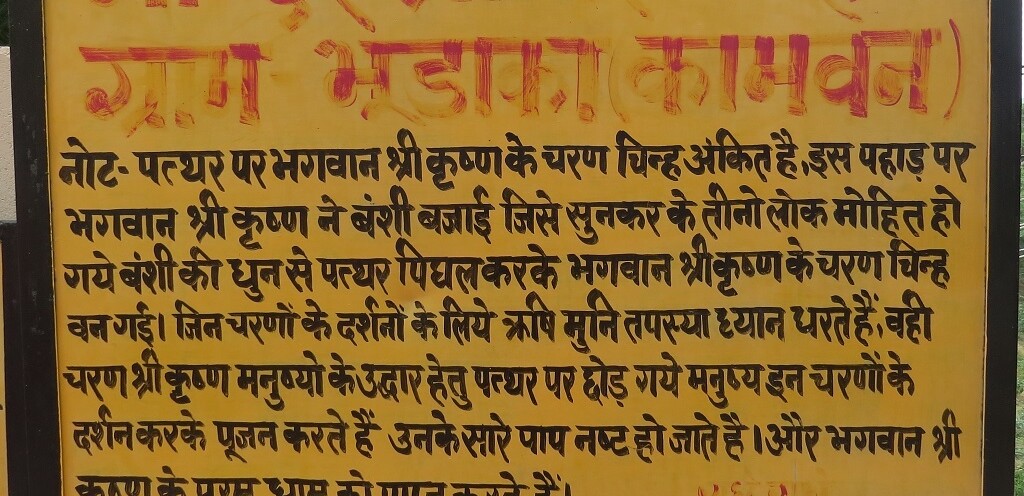 ग्राम भडाका (कामवन)
नोट- पत्थर पर भगवान श्री कृष्ण के चरण चिन्ह अंकित है, इस पहाड़ पर
भगवान श्री कृष्ण ने बंशी बजाई जिसे सुनकर के तीनो लोक मोहित हो
गये बंशी की धुन से पत्थर पिघल करके भगवान श्री कृष्ण के चरण चिन्ह
वन गई। जिन चरणों के दर्शनों के लिये ऋषि मुनि तपस्या ध्यान धरते हैं, वही
चरण श्री कृष्ण मनुष्यो के उद्धार हेतु पत्थर पर छोड़ गये मनुष्य इन चरणों के
दर्शन करके पूजन करते हैं उनके सारे पाप नष्ट हो जाते है। और भगवान श्री
कृष्ण के परम धाम को प्राप्त करते हैं।